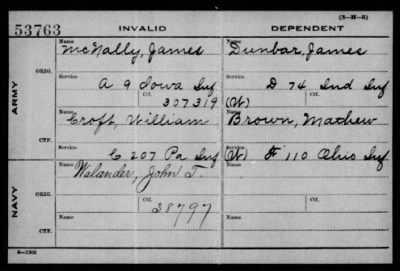 (3-H-5)
53763 INVALID DEPENDENT
Name Name
McNally, James Dunbar, James
ORIG.
Service Ctf. Service Ctf.
A 9 Iowa Inf D 74 Ind Inf
307319 (W)
ARMY
Name Name
Croft, William Brown, Mathew
CTF.
Service Service
C 207 Pa Inf (W) F 110 Ohio Inf
Name Name
Walander, John T.
ORIG.
Ctf. Ctf.
38797
NAVY
Name Name
CTF.
6-1202